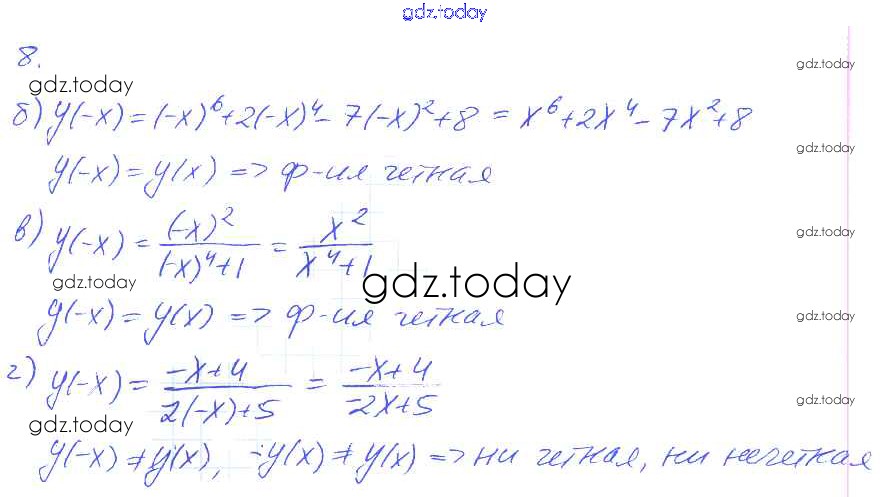 gdz.today
8.
gdz.today
gdz.today
б) y(-x) = (-x)^6+2(-x)^4-7(-x)^2+8 = x^6+2x^4-7x^2+8
gdz.today
y(-x) = y(x) => ф-ия четная
в) y(-x) = (-x)^2/((-x)^4+1) = x^2/(x^4+1)
gdz.today
gdz.today
gdz.today
y(-x) = y(x) => ф-ия четная
gdz.today
г) y(-x) = (-x+4)/(2(-x)+5) = (-x+4)/(-2x+5)
gdz.today
gdz.today
y(-x) ≠ y(x), -y(x) ≠ y(x) => ни четная, ни нечетная